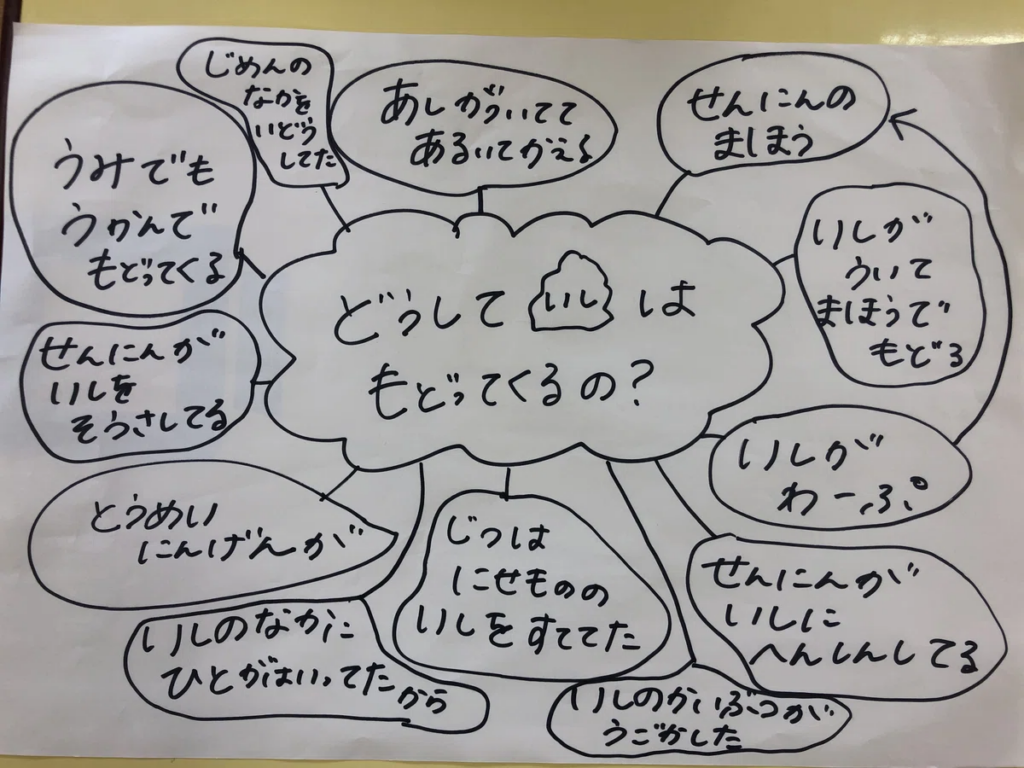 どうして いし は
もどってくるの?
じめんの
なかを
いどう
してた
あしがついてて
あるいてかえる
せんにんの
まじほう
いしが
ういて
まほうで
もどる
いしが
わーぷ
せんにんが
いしに
へんしんしてる
いしのかいぶつが
うごかした
じつは
にせものの
いしをすててた
いしのなかに
ひとがはいってたから
とうめい
にんげんが
せんにんが
いしを
そうさしてる
うみでも
うかんで
もどってくる